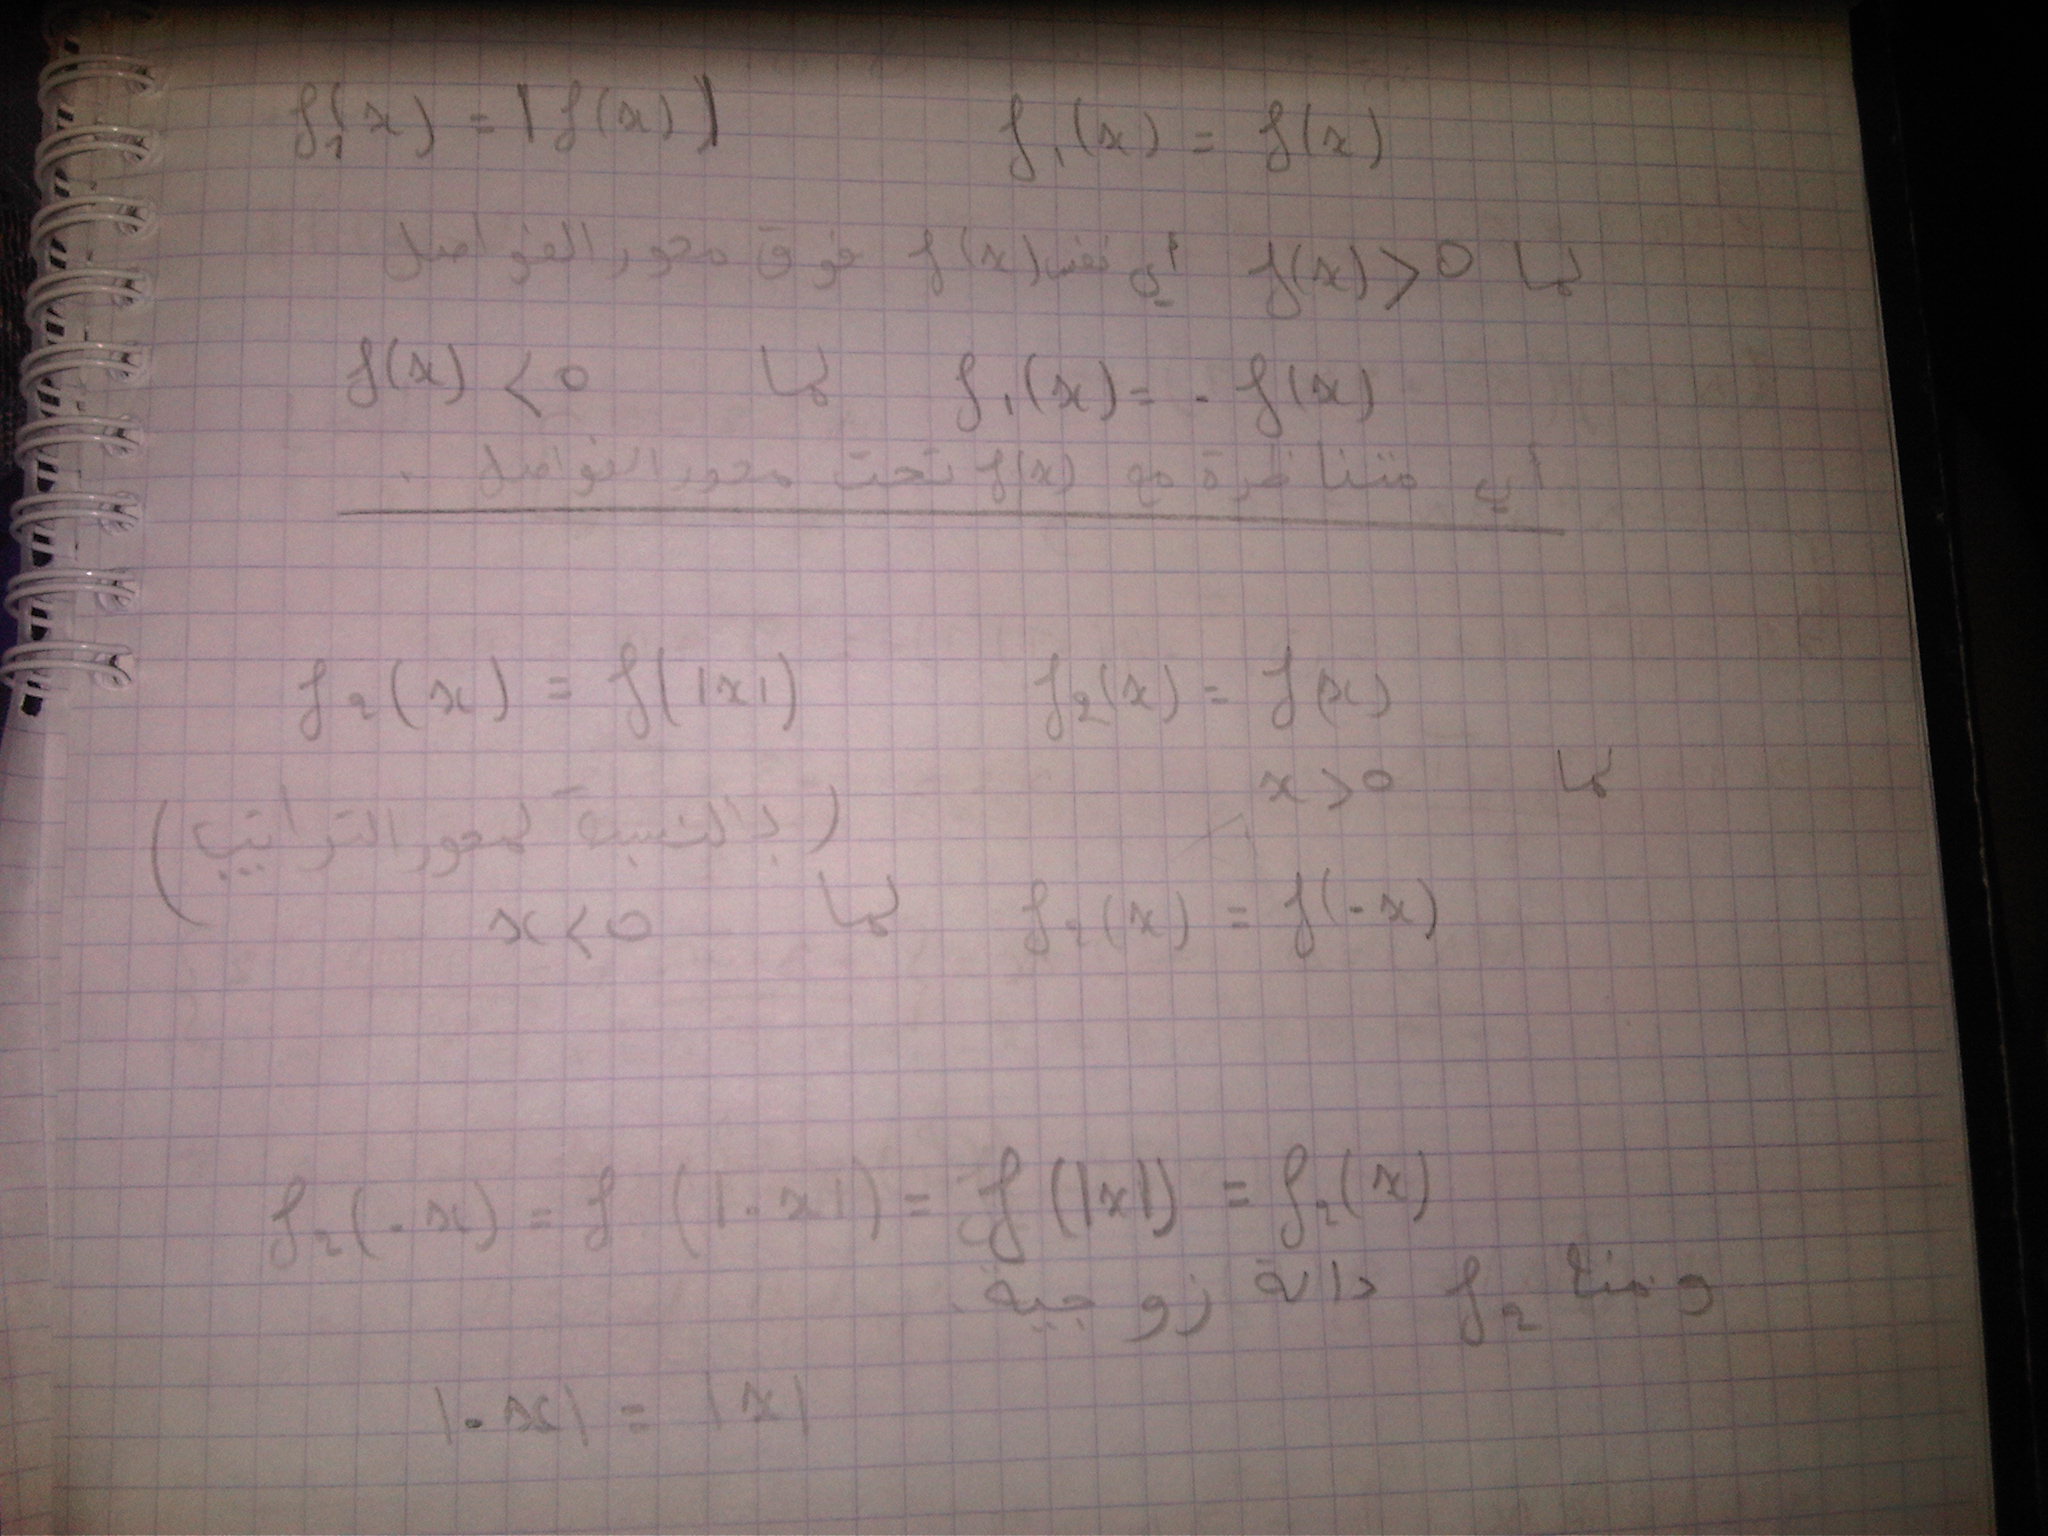 f₁(x) = |f(x)| f₁(x) = f(x)
لما f(x) > 0 أي نفس f(x) فوق محور الفواصل
f₁(x) = - f(x) لما f(x) < 0
أي متناظرة مع f(x) تحت محور الفواصل .
f₂(x) = f(|x|) f₂(x) = f(x)
لما x > 0
(بالنسبة لمحور التراتيب)
f₂(x) = f(-x) لما x < 0
f₂(-x) = f(|-x|) = f(|x|) = f₂(x)
ومنه f₂ دالة زوجية.
|-x| = |x|